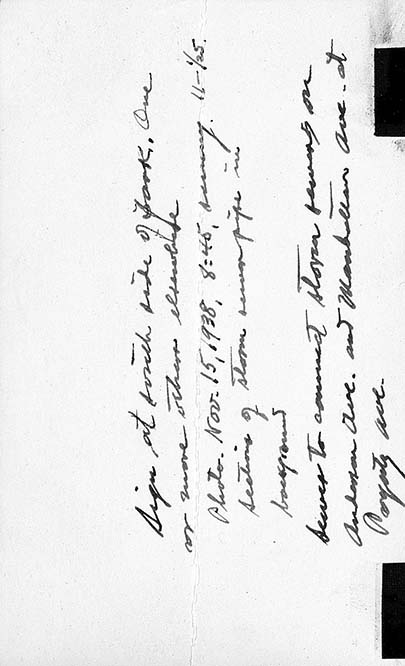 Sign at south side of park, One
or more others elsewhere
Photo. Nov. 15, 1938, 8:45, sunny. 11-1/25.
Section of storm sewer pipe in
background
Sewer to connect storm sewers on
Anderson Ave. and Manhattan Ave. at
Poyntz Ave.